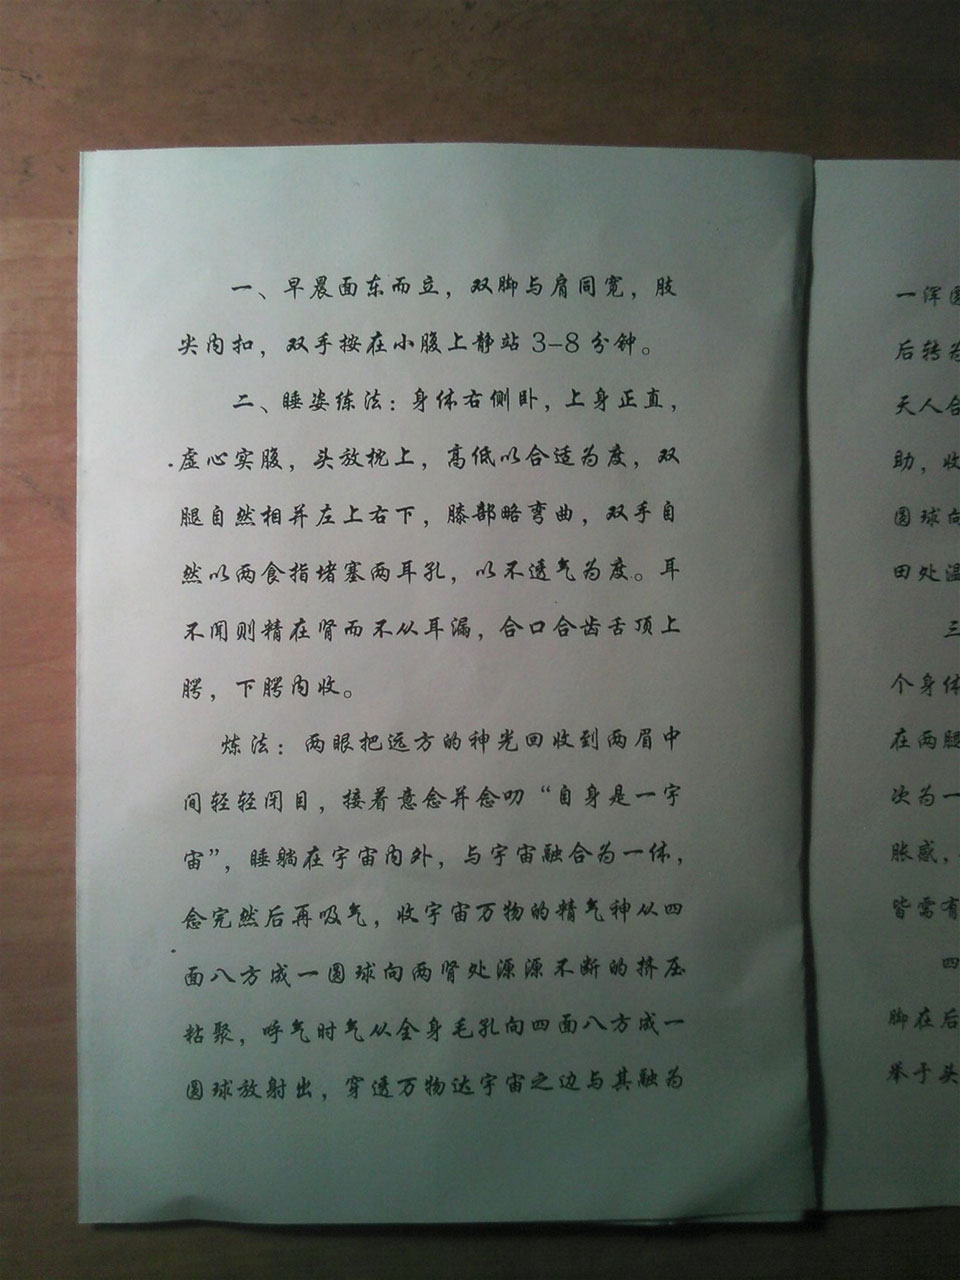 一、早晨面东而立，双脚与肩同宽，肢
尖内扣，双手按在小腹上静站3-8分钟。
二、睡姿练法：身体右侧卧，上身正直，
虚心实腹，头放枕上，高低以合适为度，双
腿自然相并左上右下，膝部略弯曲，双手自
然以两食指堵塞两耳孔，以不透气为度。耳
不闻则精在肾而不从耳漏，合口合齿舌顶上
腭，下腭内收。
炼法：两眼把远方的神光回收到两眉中
间轻轻闭目，接着意念并念叨“自身是一宇
宙”，睡躺在宇宙内外，与宇宙融合为一体，
念完然后再吸气，收宇宙万物的精气神从四
面八方成一圆球向两肾处源源不断的挤压
粘聚，呼气时气从全身毛孔向四面八方成一
圆球放射出，穿透万物达宇宙之边与其融为
一浑圆
后转为
天人合
助，收
圆球向
田处温
三
个身体
在两腿
次为一
胀感，
皆需有
四
脚在后
举于头